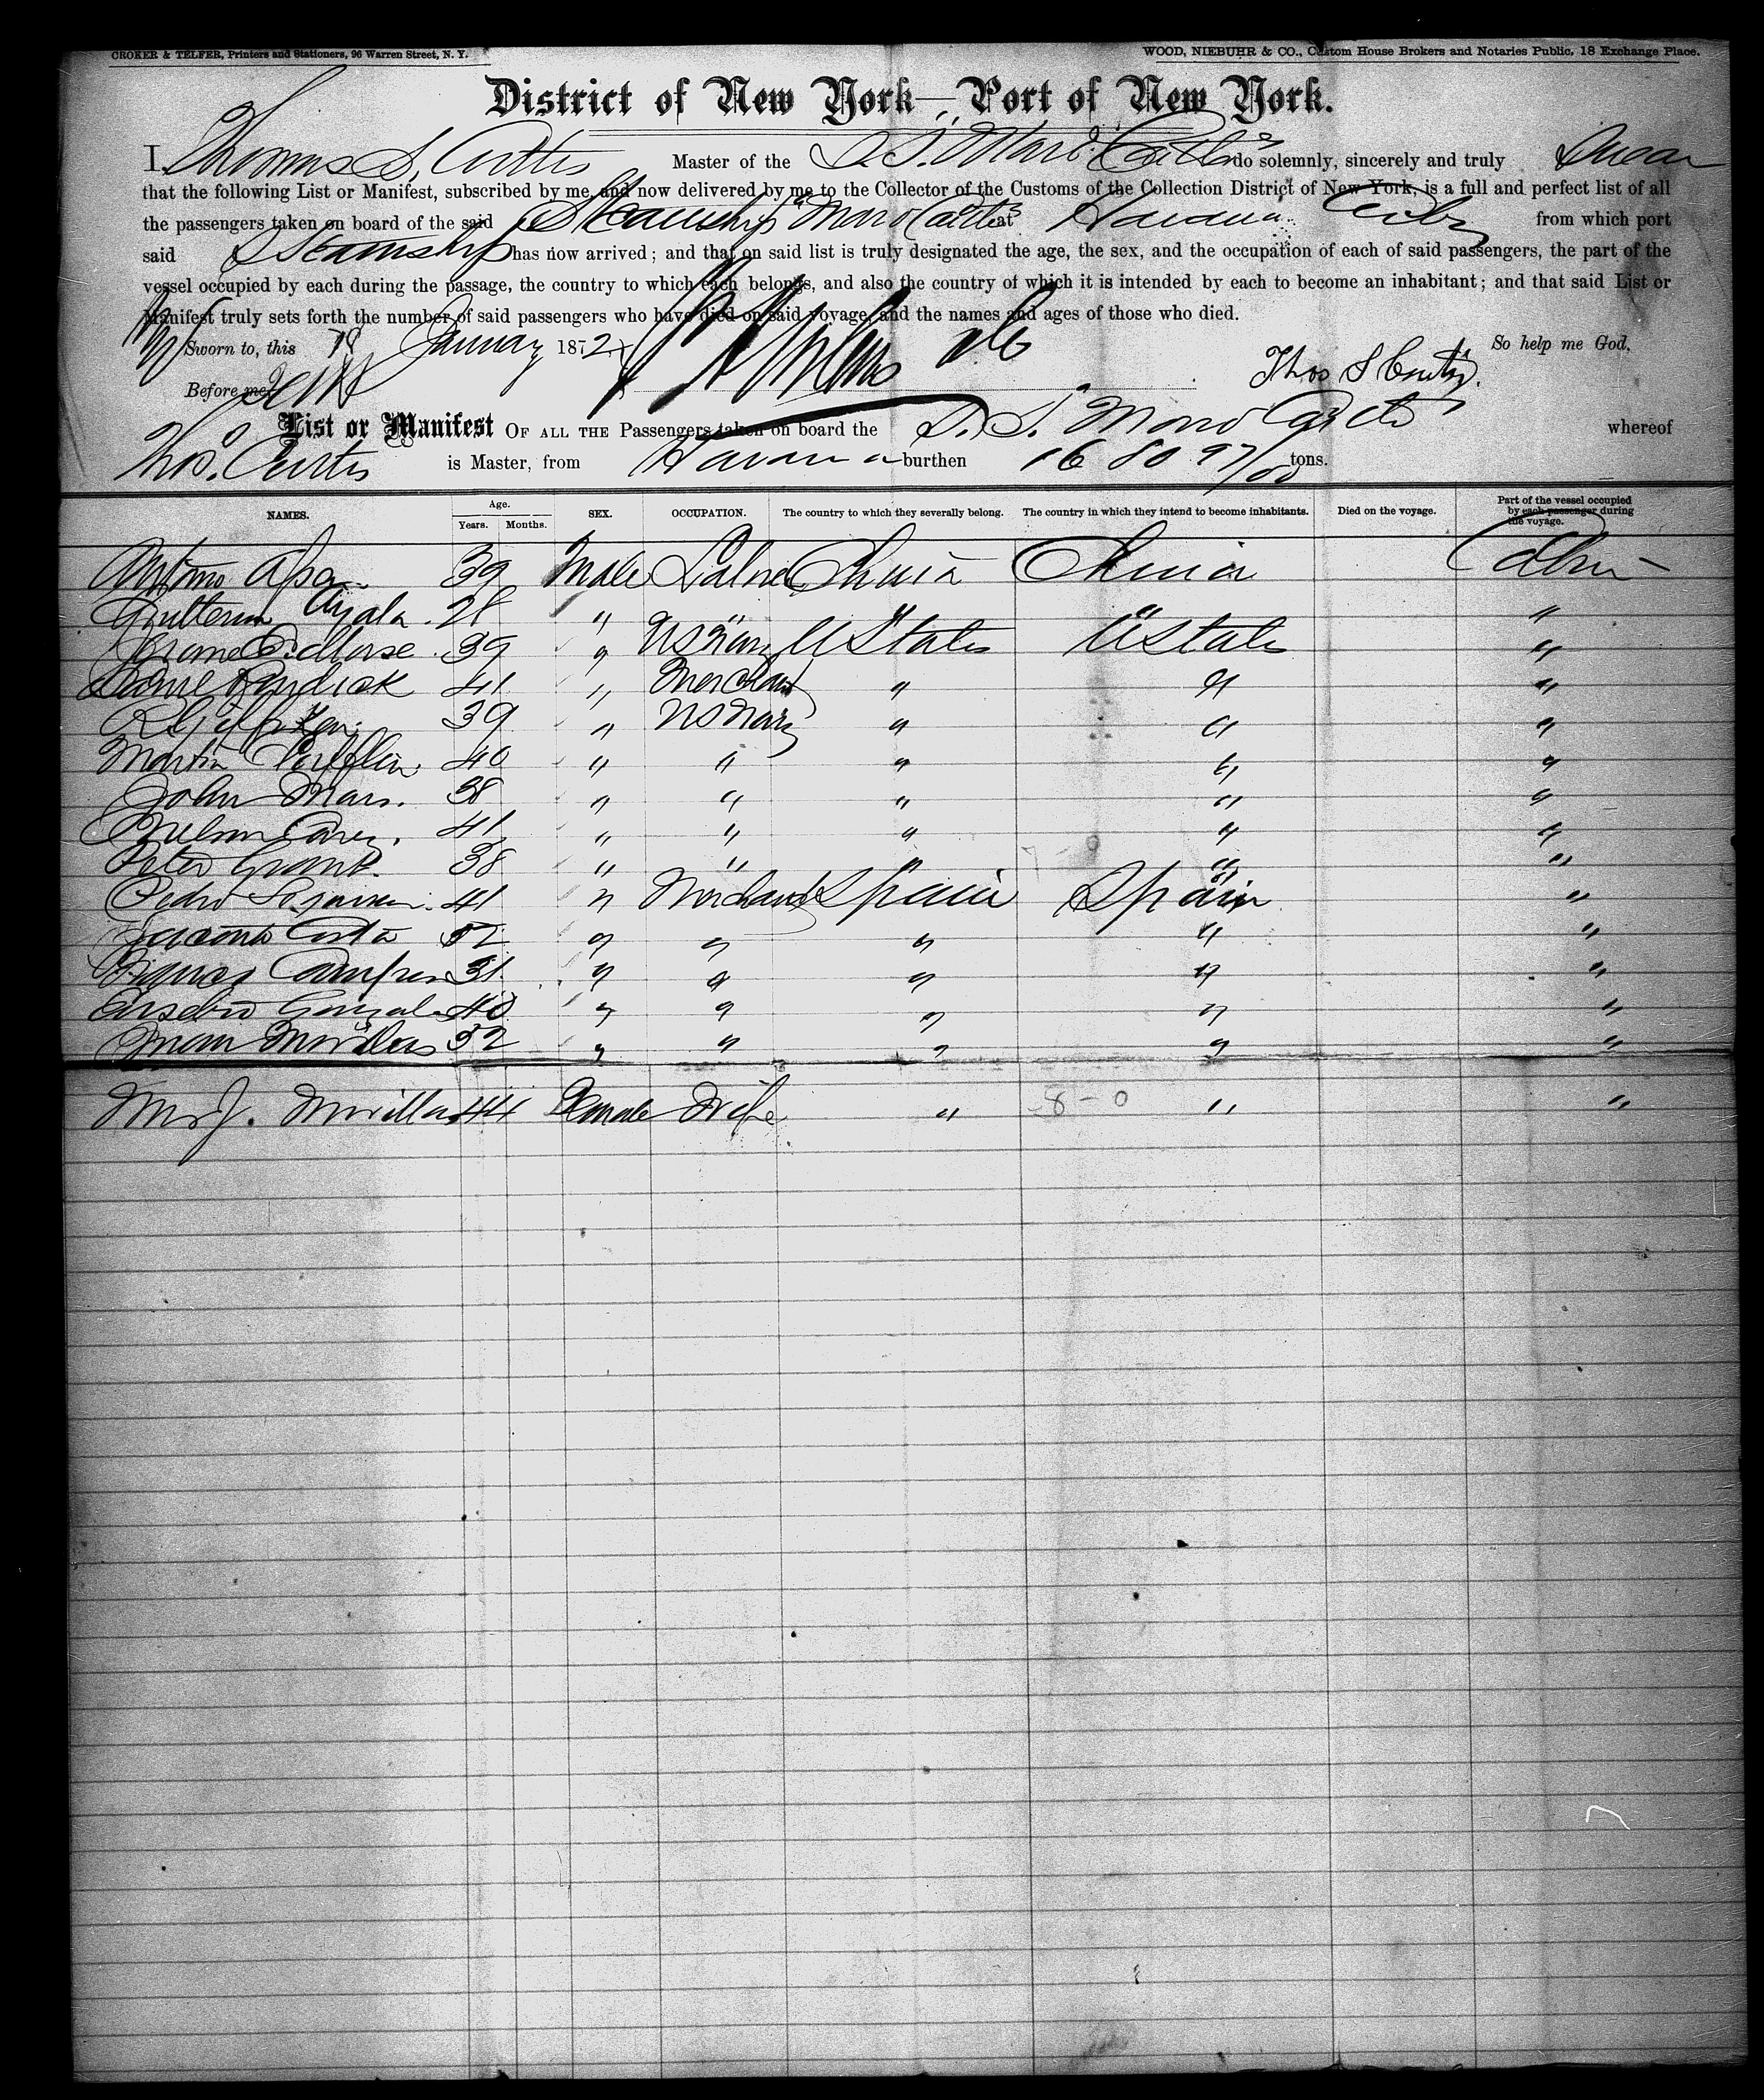 CROKER & TELFER, Printers and Stationers, 96 Warren Street, N. Y.
WOOD, NIEBUHR & CO., Custom House Brokers and Notaries Public, 18 Exchange Place.
District of New York—Port of New York.
I, Thomas S. Curtis Master of the S.S. Morro Castle do solemnly, sincerely and truly Swear
that the following List or Manifest, subscribed by me, and now delivered by me to the Collector of the Customs of the Collection District of New York, is a full and perfect list of all
the passengers taken on board of the said Steamship Morro Castle at Havana Cuba from which port
said Steamship has now arrived; and that on said list is truly designated the age, the sex, and the occupation of each of said passengers, the part of the
vessel occupied by each during the passage, the country to which each belongs, and also the country of which it is intended by each to become an inhabitant; and that said List or
Manifest truly sets forth the number of said passengers who have died on said voyage, and the names and ages of those who died.
Sworn to, this 18 January 1872 So help me God,
Before me, Thos S Curtis.
List or Manifest OF ALL THE Passengers taken on board the S. S. Morro Castle whereof
Thos. Curtis is Master, from Havana burthen 1680 97/00 tons.
NAMES. Age. Years. Months. SEX. OCCUPATION. The country to which they severally belong. The country in which they intend to become inhabitants. Died on the voyage. Part of the vessel occupied by each passenger during the voyage.
Antonio 39 Male China China Cabin
Ayala 28 " " " " "
Morse 39 " US Navy U States U States "
41 " Merchant " " "
39 " US Navy " " "
Martin 40 " " " " "
John 38 " " " " "
41 " " " " "
Peter Grant 38 " " " " "
Pedro 41 " Merchant Spain Spain "
Costa 52 " " " " "
31 " " " " "
Eusebio 40 " " " " "
Juan 32 " " " " "
Mrs J. 44 Female Wife " 8-0 " "